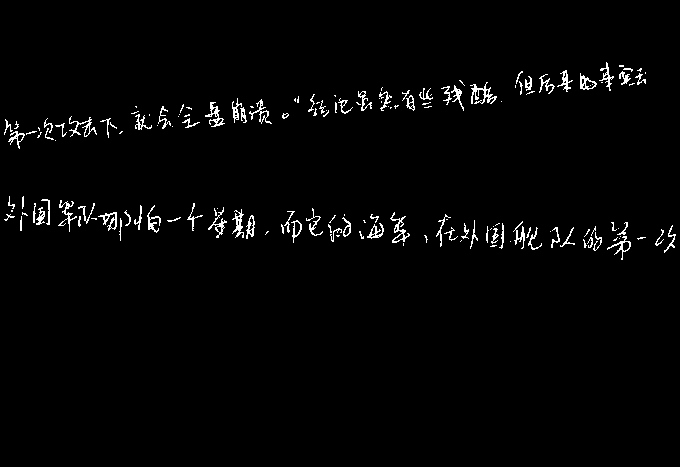 第一次攻击下，就会全盘崩溃。“结论虽然有些残酷，但后来的事实去
外国军队哪怕一个星期，而它的海军，在外国舰队的第一次